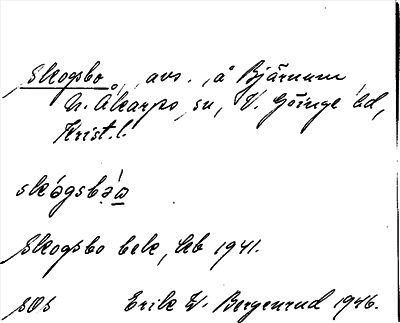 Skogsbo, avs. å Bjärnum,
N. Åkarps sn, V. Göinge hd,
Krist. l.
skógsbə̀ɷ
Skogsbo bek, kb 1941.
sos Erik W. Bergenrud 1946.